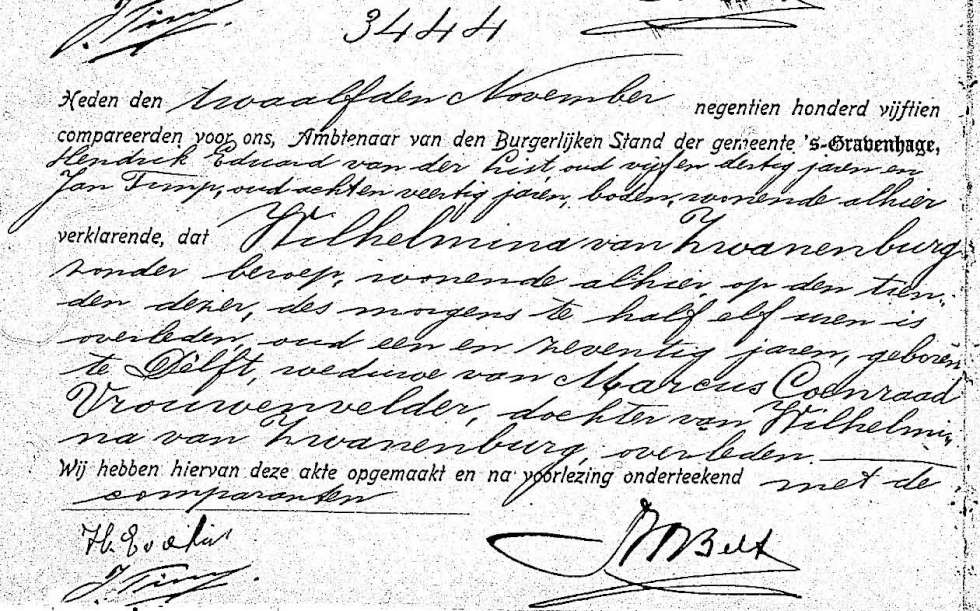 3444
Heden den twaalfden November negentien honderd vijftien
compareerden voor ons, Ambtenaar van den Burgerlijken Stand der gemeente 's-Gravenhage,
Hendrik Eduard van der List, oud vijf en dertig jaren en
Jan Timp, oud acht en veertig jaren, boden, wonende alhier
verklarende, dat Wilhelmina van Zwanenburg
zonder beroep, wonende alhier, op den tien-
den dezer, des morgens te half elf uren is
overleden, oud een en zeventig jaren, geboren
te Delft, weduwe van Marcus Coenraad
Vrouwenvelder, dochter van Wilhelmi-
na van Zwanenburg, overleden.
Wij hebben hiervan deze akte opgemaakt en na voorlezing onderteekend met de
comparanten
J Timp